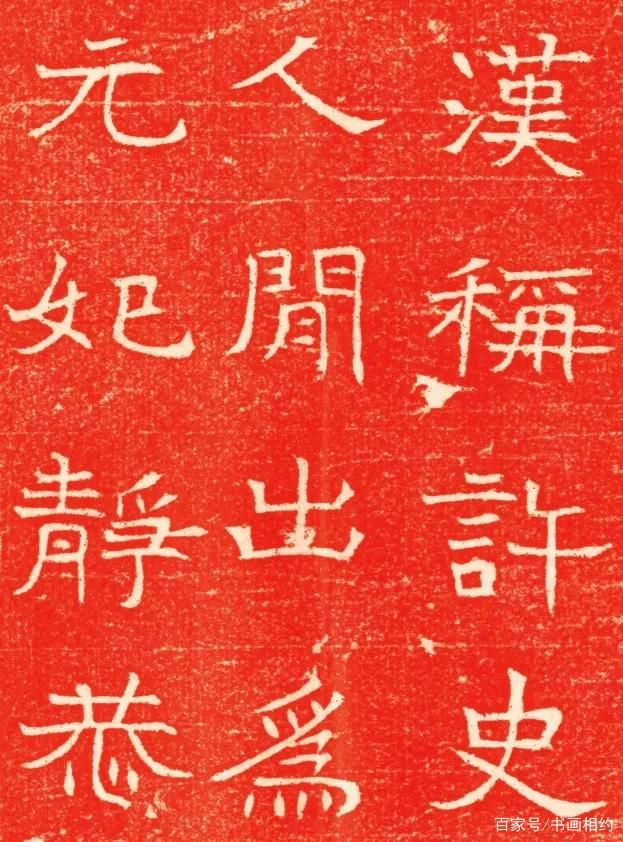 漢稱許史
人閒出為
元妃靜恭
百家号/书画相约